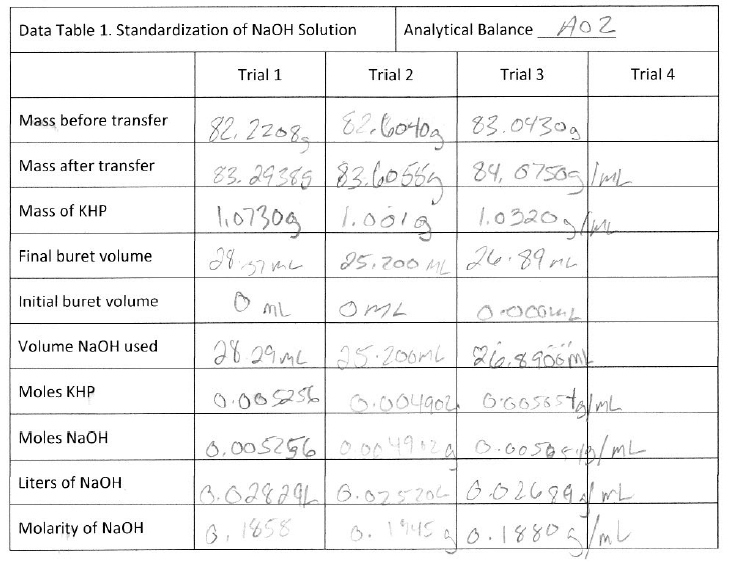 Data Table 1. Standardization of NaOH Solution Analytical Balance A02
Trial 1 Trial 2 Trial 3 Trial 4
Mass before transfer 82.2208g 82.6040g 83.0430g
Mass after transfer 83.2938g 83.6055g 84.0750g/mL
Mass of KHP 1.0730g 1.001g 1.0320g/mL
Final buret volume mL 25.200 mL 26.89 mL
Initial buret volume 0 mL 0mL 0.000mL
Volume NaOH used 28.29mL 25.200mL 26.8900mL
Moles KHP 0.005256 0.004902 g/mL
Moles NaOH 0.005256 0.004902g g/mL
Liters of NaOH 0.02829L 0.02520L 0.02689 g/mL
Molarity of NaOH 0.1858 0.1945g 0.1880g/mL